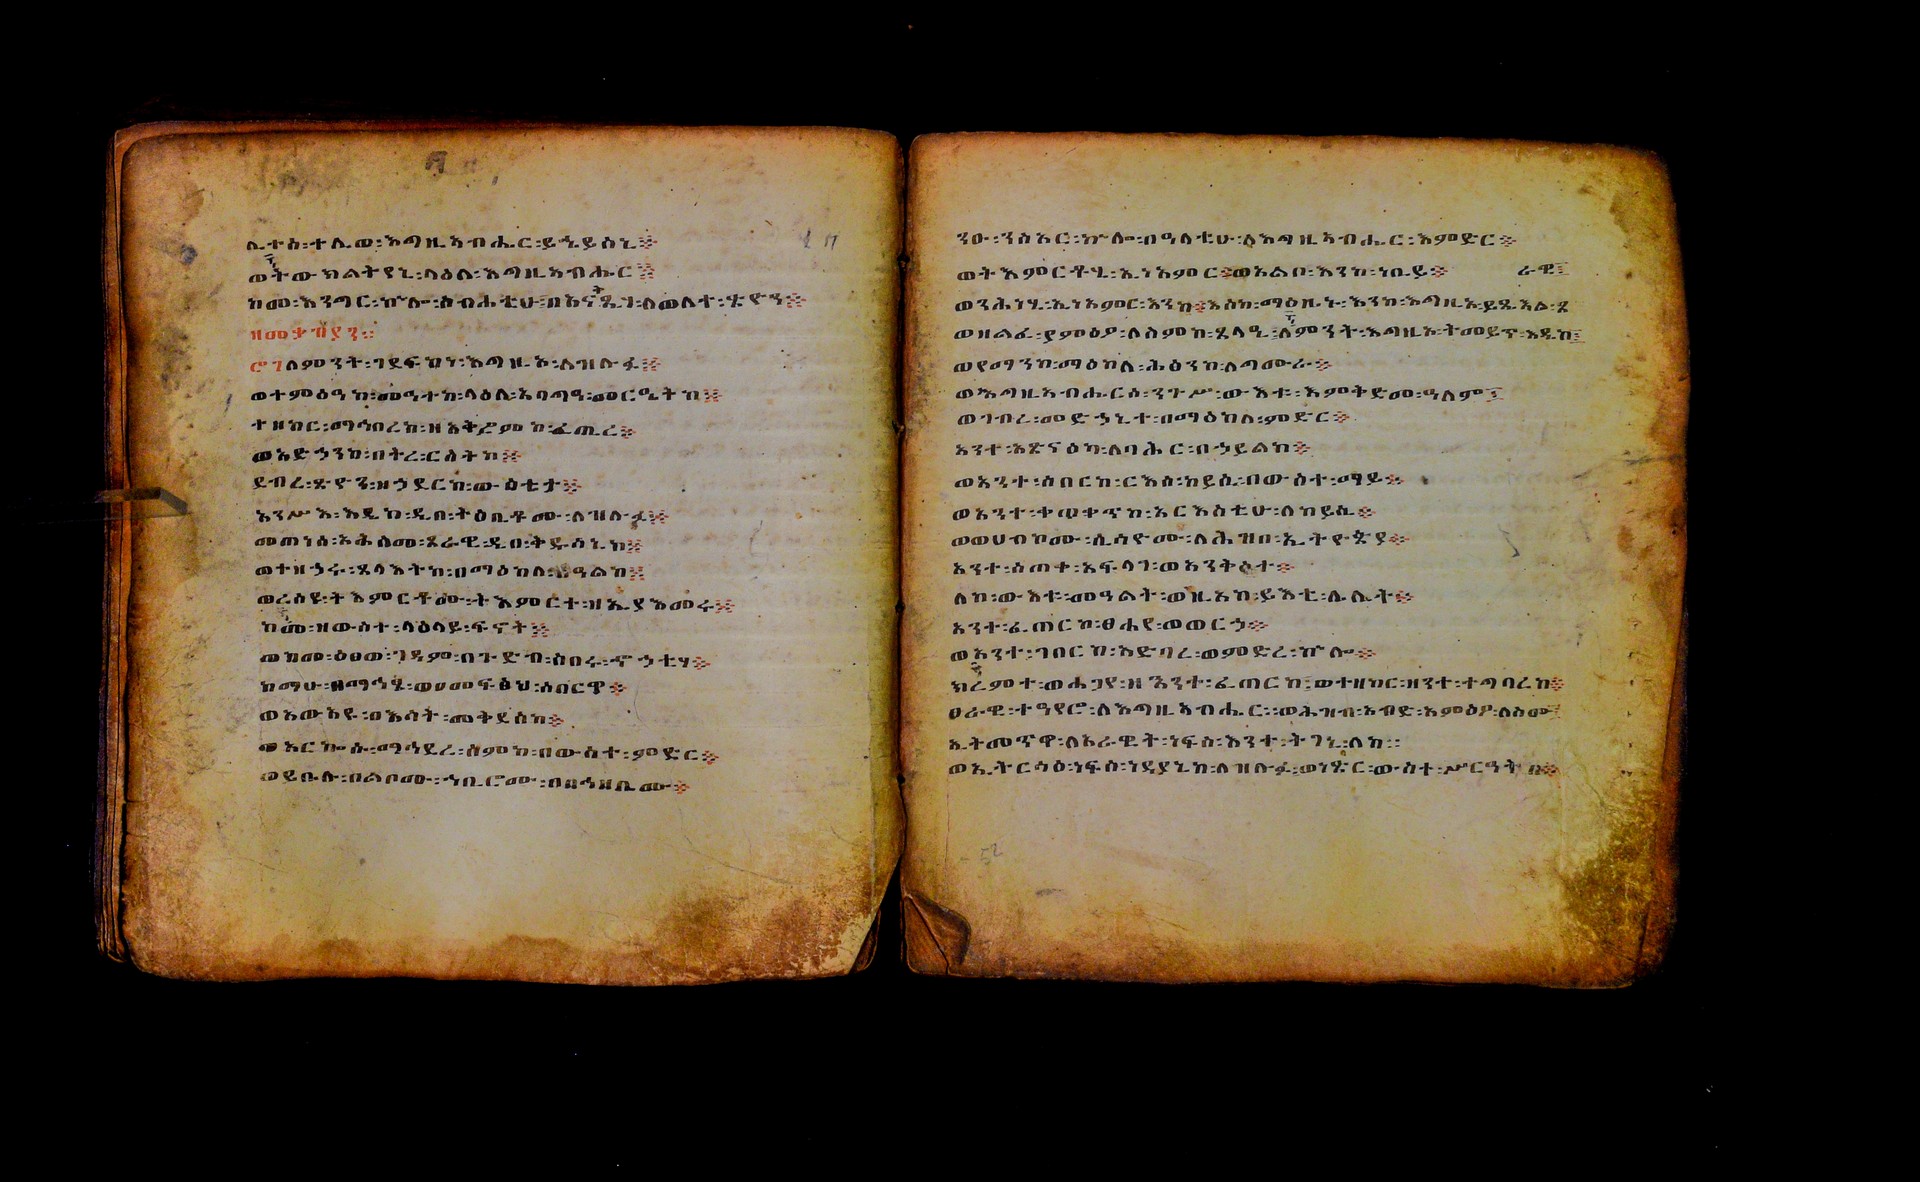 ሊተሰ፡ተሊወ፡እግዚአብሔር፡ይኄይሰኒ።
ወትውክልትየኒ፡ላዕለ፡እግዚአብሔር።
ከመ፡እንግር፡ኵሎ፡ስብሐቲሁ፡በአናቅጺሃ፡ለወለተ፡ጽዮን።
፸፫ለምንት፡ገደፍከነ፡እግዚኦ፡ለዝሉፉ።
ወተምዕዓ፡ከመ፡መዓተከ፡ላዕለ፡አባግዓ፡መርዔትከ።
ተዘከር፡ማኅበረከ፡ዘአቅደምከ፡ፈጢረ።
ወአድኀንከ፡በትረ፡ርስትከ።
ደብረ፡ጽዮን፡ዘኀደርከ፡ውስቴታ።
አንሥእ፡እዴከ፡ዲበ፡ትዕቢቶሙ፡ለዝሉፉ።
መጠነሰ፡አሕሰመ፡ጸራዊ፡ዲበ፡ቅዱሳኒከ።
ወተዘኀሩ፡ጸላእትከ፡በማዕከለ፡በዓልከ።
ወረሰዩ፡ትእምርቶሙ፡ትእምርተ፡ዝኢያእመሩ።
ከመ፡ዘውስተ፡ላዕላይ፡ፍኖት።
ወከመ፡ዕፀወ፡ገዳም፡በጉድብ፡ሰበሩ፡ኆኃቲሃ።
ከማሁ፡በማኅፄ፡ወሰመፍፅህ፡ሰበርዋ።
ወአውዐዩ፡በእሳት፡መቅደሰከ።
ወአርኰሱ፡ማኅደረ፡ስምከ፡በውስተ፡ምድር።
ወይቤሉ፡በልቦሙ፡ኅቢሮሙ፡በበሕዘቢሙ።
ንዑ፡ንስዐር፡ኵሎ፡በዓላቲሁ፡ለእግዚአብሔር፡እምድር።
ወትእምርቶሂ፡ኢነአምር፡ወአልቦ፡እንከ፡ነቢይ።
ራዊ፤
ወንሕነሂ፡ኢነአምር፡እንከ።እስከ፡ማዕዜኑ፡እንከ፡እግዚኦ፡ይጼእል፡ጸ
ወዘልፈ፡ያምዕዖ፡ለስምከ፡ጸላዒ፤ለምንት፡እግዚኦ፡ትመይጥ፡እዴከ፤
ወየማንከ፡ማዕከለ፡ሕፅንከ፡ለግሙራ።
ወእግዚአብሔርሰ፡ንጉሥ፡ውእቱ፡እምቅድመ፡ዓለም፤
ወገብረ፡መድኀኒተ፡በማዕከለ፡ምድር።
አንተ፡አጽናዕካ፡ለባሕር፡በኀይልከ።
ወአንተ፡ሰበርከ፡ርእሰ፡ከይሲ፡በውስተ፡ማይ።
ወአንተ፡ቀጥቀጥከ፡አርእስቲሁ፡ለከይሲ።
ወወሀብኮሙ፡ሲሳዮሙ፡ለሕዝበ፡ኢትዮጵያ።
አንተ፡ሰጠቀ፡አፍላገ፡ወአንቅዕተ።
ለከ፡ውእቱ፡መዓልት፡ወዚአከ፡ይእቲ፡ሌሊት።
አንተ፡ፈጠርከ፡ፀሐየ፡ወወርኀ።
ወአንተ፡ገበርከ፡አድባረ፡ወምድረ፡ኵሎ።
ክረምተ፡ወሐጋየ፡ዘአንተ፡ፈጠርከ፤ወተዘከር፡ዝንተ፡ተግባረከ።
ፀራዊ፡ተዓየሮ፡ለእግዚአብሔር፡፡ወሕዝብ፡አብድ፡አምዕዖ፡ለስሙ፤
ኢትመጥዋ፡ለአራዊት፡ነፍሰ፡እንተ፡ትገኒ፡ለከ፡፡
ወኢትርሳዕ፡ነፍሰ፡ነዳያኒከ፡ለዝሉፉ፤ወነጽር፡ውስተ፡ሥርዓትከ።